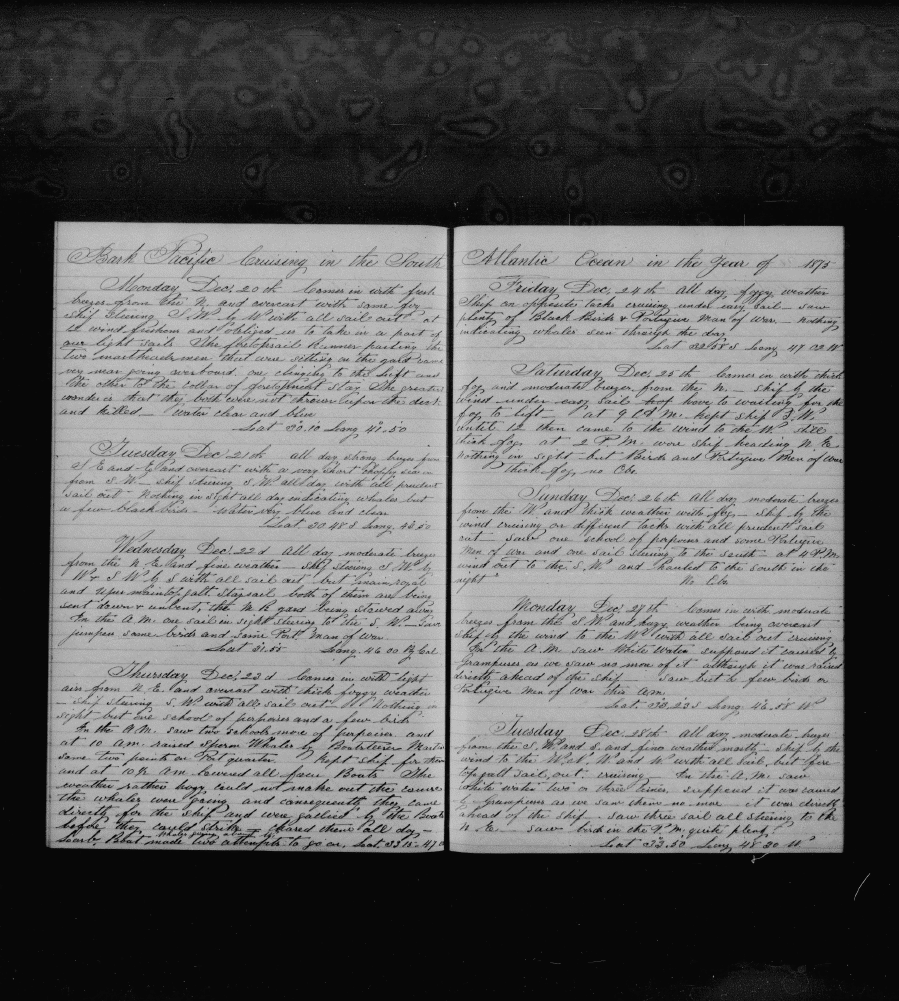 Bark Pacific Cruising in the South
Monday Dec. 20th Comes in with fresh
breezes from the N. and overcast with some fog
Ship steering S.W. by W with all sail out at
12 wind freshens and obliged us to take in a part of
our light sails The foretopsail runner parting the
two masthead men that were sitting on the yard came
very near going overboard one clinging to the lift and
the other to the collar of foretopmast stay The greatest
wonder is that they both were not thrown upon the deck
and killed - water clear and blue
Lat 30.10 Long 41.50
Tuesday Dec. 21th all day strong breezes from
N E and E and overcast with a very short choppy sea on
from S.W. - ship steering S.W. all day with all prudent
sail out - Nothing in sight all day indicating whales but
a few black birds - water very blue and clear
Lat. 30 48 S Long. 43.50
Wednesday Dec. 22d All day moderate breezes
from the N. E. and fine weather - Ship steering S. W. by
W & S W by S with all sail out - but main royal
and upper maintop gall staysail both of them are being
sent down & unbent, the M R yard being
In the A.M. one sail in sight steering to the S. W. - Saw
jumpers some birds and some Port. Man of War
Lat 31.55 Long. 46 00 By Cal
Thursday Dec. 23d Comes in with light
airs from N. E. and overcast with thick foggy weather
- ship steering S. W. with all sail out Nothing in
sight but one school of porpoises and a few birds
In the A.M. saw two schools more of porpoises and
at 10 A.M. raised Sperm Whales by Boatsteerer
some two points on Port quarter kept ship for them
and at 10½ AM lowered all four Boats The
weather rather foggy could not make out the course
the whales were going and consequently they came
directly for the ship and were gallied by the Boats
before they could strike - Chased them all day -
Larb. Boat made two attempts to go on. Lat. 33 15 - 47 0
Atlantic Ocean in the Year of 1875
Friday Dec. 24th All day foggy weather
Ship on opposite tacks cruising under easy sail - saw
plenty of Black Birds & Portugue Man of War - nothing
indicating whales seen through the day
Lat 32.58 S Long 47 02 W
Saturday Dec. 25th Comes in with thick
fog and moderate breezes from the N. - ship by the
wind under easy sail hove to waiting for the
fog to lift - at 9 A.M. kept ship S.W.
until 12 then came to the wind to the W. still
thick fog at 2 P.M. wore ship heading N. E.
nothing in sight but Birds and Portugue Men of War
Thick fog no Obs.
Sunday Dec. 26th All day moderate breezes
from the N. and thick weather with fog - ship by the
wind cruising on different tacks with all prudent sail
out - saw one school of porpoises and some Portugue
Men of War and one sail steering to the south - at 4 P.M.
wind out to the S. W. and hauled to the south in the
night No Obs
Monday Dec. 27th Comes in with moderate
breezes from the S W and foggy weather being overcast
ship by the wind to the W. with all sail out cruising
In the A.M. saw White Water supposed it caused by
Grampuses as we saw no more of it although it was raised
directly ahead of the ship - saw but a few birds or
Portugue Men of War this A.M.
Lat. 33.22 S Long. 46.58 W
Tuesday Dec. 28th All day moderate breezes
from the S. W. and S. and fine weather mostly - ship by the
wind to the W. N. W and W with all sail but fore
topgall sail out cruising - In the A.M. saw
white water two or three times, supposed it was caused
by Grampuses as we saw them no more it was directly
ahead of the ship - saw three sail all steering to the
N. E. saw birds in the P.M. quite plenty
Lat 33.50 Long 48 20 W.